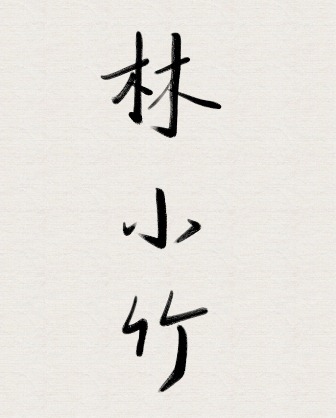 林小竹